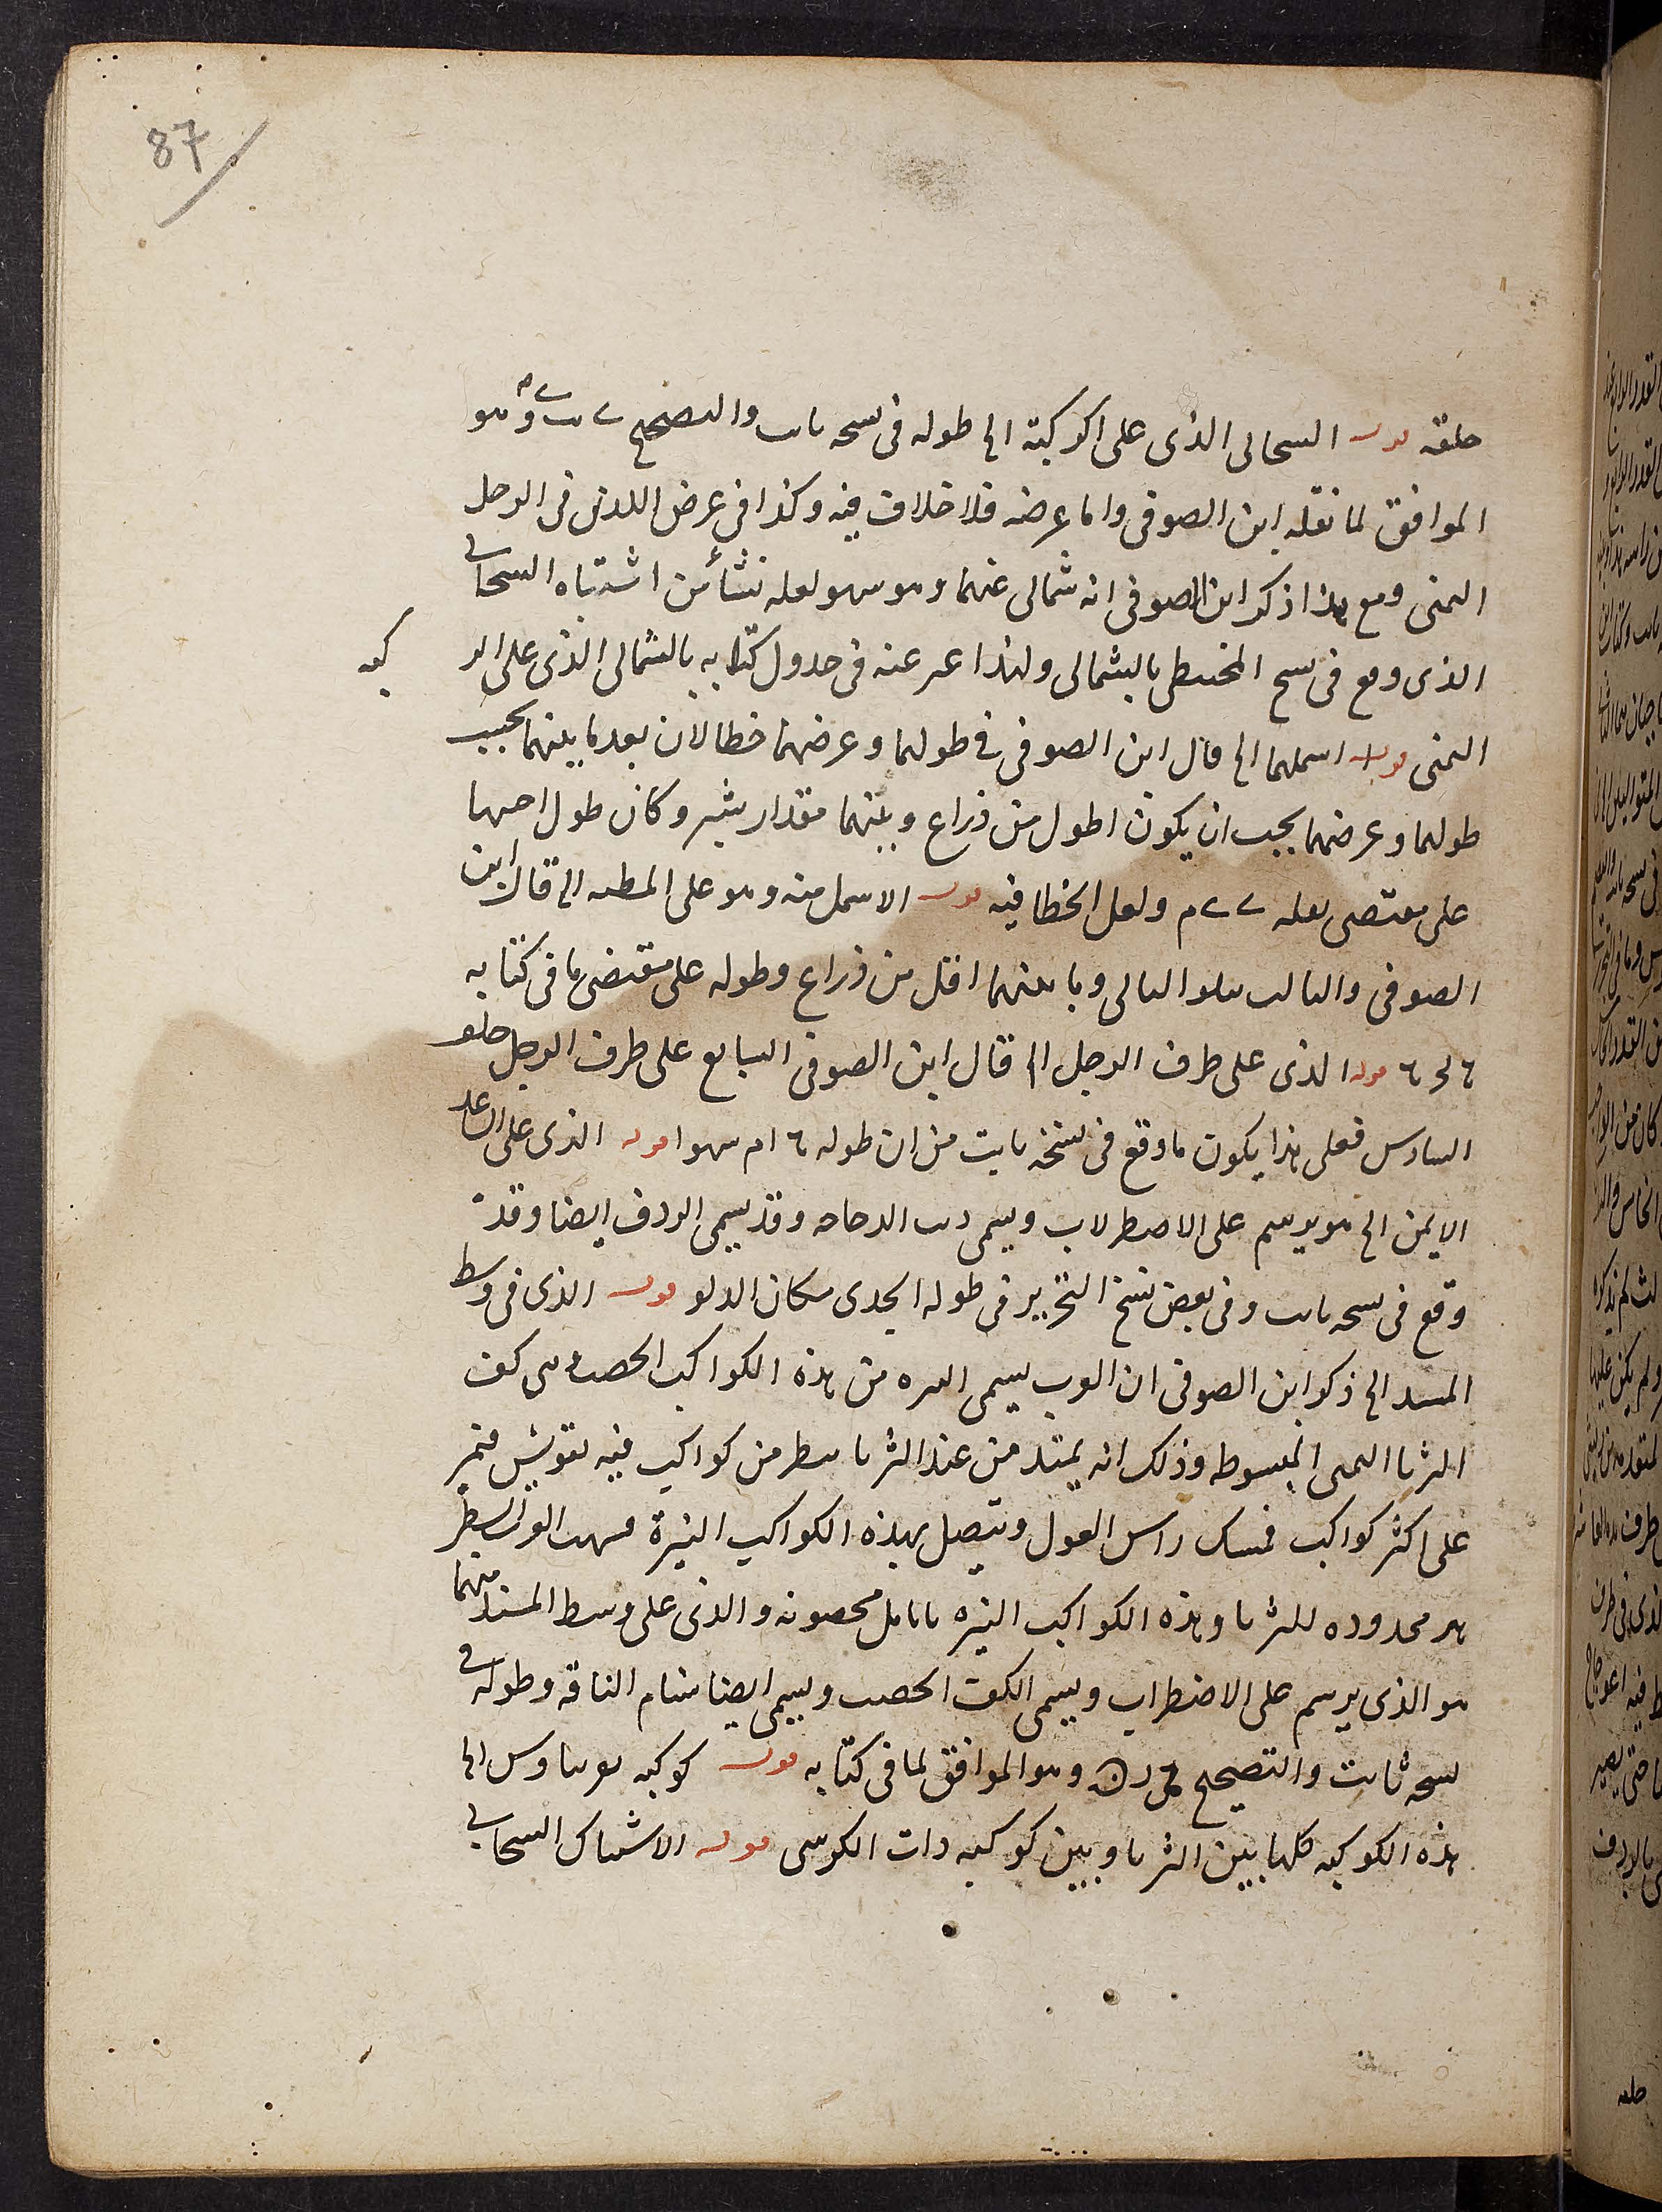 87
خلفه قوله السحابى الذى على الركبة الخ طوله فى نسخه ثابت والتصحيح وهو
الموافق لما نقله ابن الصوفى واما عرضه فلا خلاف فيه وكذا فى عرض اللذين فى الرجل
اليمنى ومع هذا ذكر ابن الصوفى انه شمالى عنهما وهو سهو لعله نشأ من اشتباه السحابى
الذى وقع فى نسخ المجسطى بالشمالى ولهذا عبر عنه فى جدول كتابه بالشمالى الذى على الر كبه
اليمنى قوله اشملهما الخ قال ابن الصوفى فى طولهما وعرضهما خطا لان بعد ما بينهما بحسب
طولهما وعرضهما يجب ان يكون اطول من ذراع وبينهما مقدار شبر وكان طول
على مقتضى نقله ولعل الخطا فيه قوله الاشمل منه وهو على الخ قال ابن
الصوفى والثالث يتلو الثانى وما بينهما اقل من ذراع وطوله على مقتضى ما فى كتابه
قوله الذى على طرف الرجل الخ قال ابن الصوفى السابع على طرف الرجل خلف
السادس فعلى هذا يكون ما وقع فى نسخة ثابت من ان طوله سهوا قوله الذى على
الايمن الخ هو يرسم على الاصطرلاب ويسمى ذنب الدجاجه وقد يسمى الردف ايضا وقد
وقع فى نسخه ثابت وفى بعض نسخ التحرير فى طوله الجدى مكان الدلو قوله الذى فى وسط
المسند الخ ذكر ابن الصوفى ان العرب يسمى النيره من هذه الكواكب الخضيب وهى كف
الثريا اليمنى المبسوطه وذلك انه يمتد من عند الثريا سطر من كواكب فيه تقويس فيمر
على اكثر كواكب ممسك راس الغول ويتصل بهذه الكواكب النيرة فشبهت العرب السطر
بيد ممدوده للثريا وهذه الكواكب النيره بانامل مخضوبه والذى على وسط المسند منها
هو الذى يرسم على الاضطراب ويسمى الكف الخضيب ويسمى ايضا سنام الناقه وطوله فى
نسخه ثابت والتصحيح وهو الموافق لما فى كتابه قوله كوكبه برساوس الخ
هذه الكوكبه كلها بين الثريا وبين كوكبه ذات الكرسى قوله الاشتباك السحابى